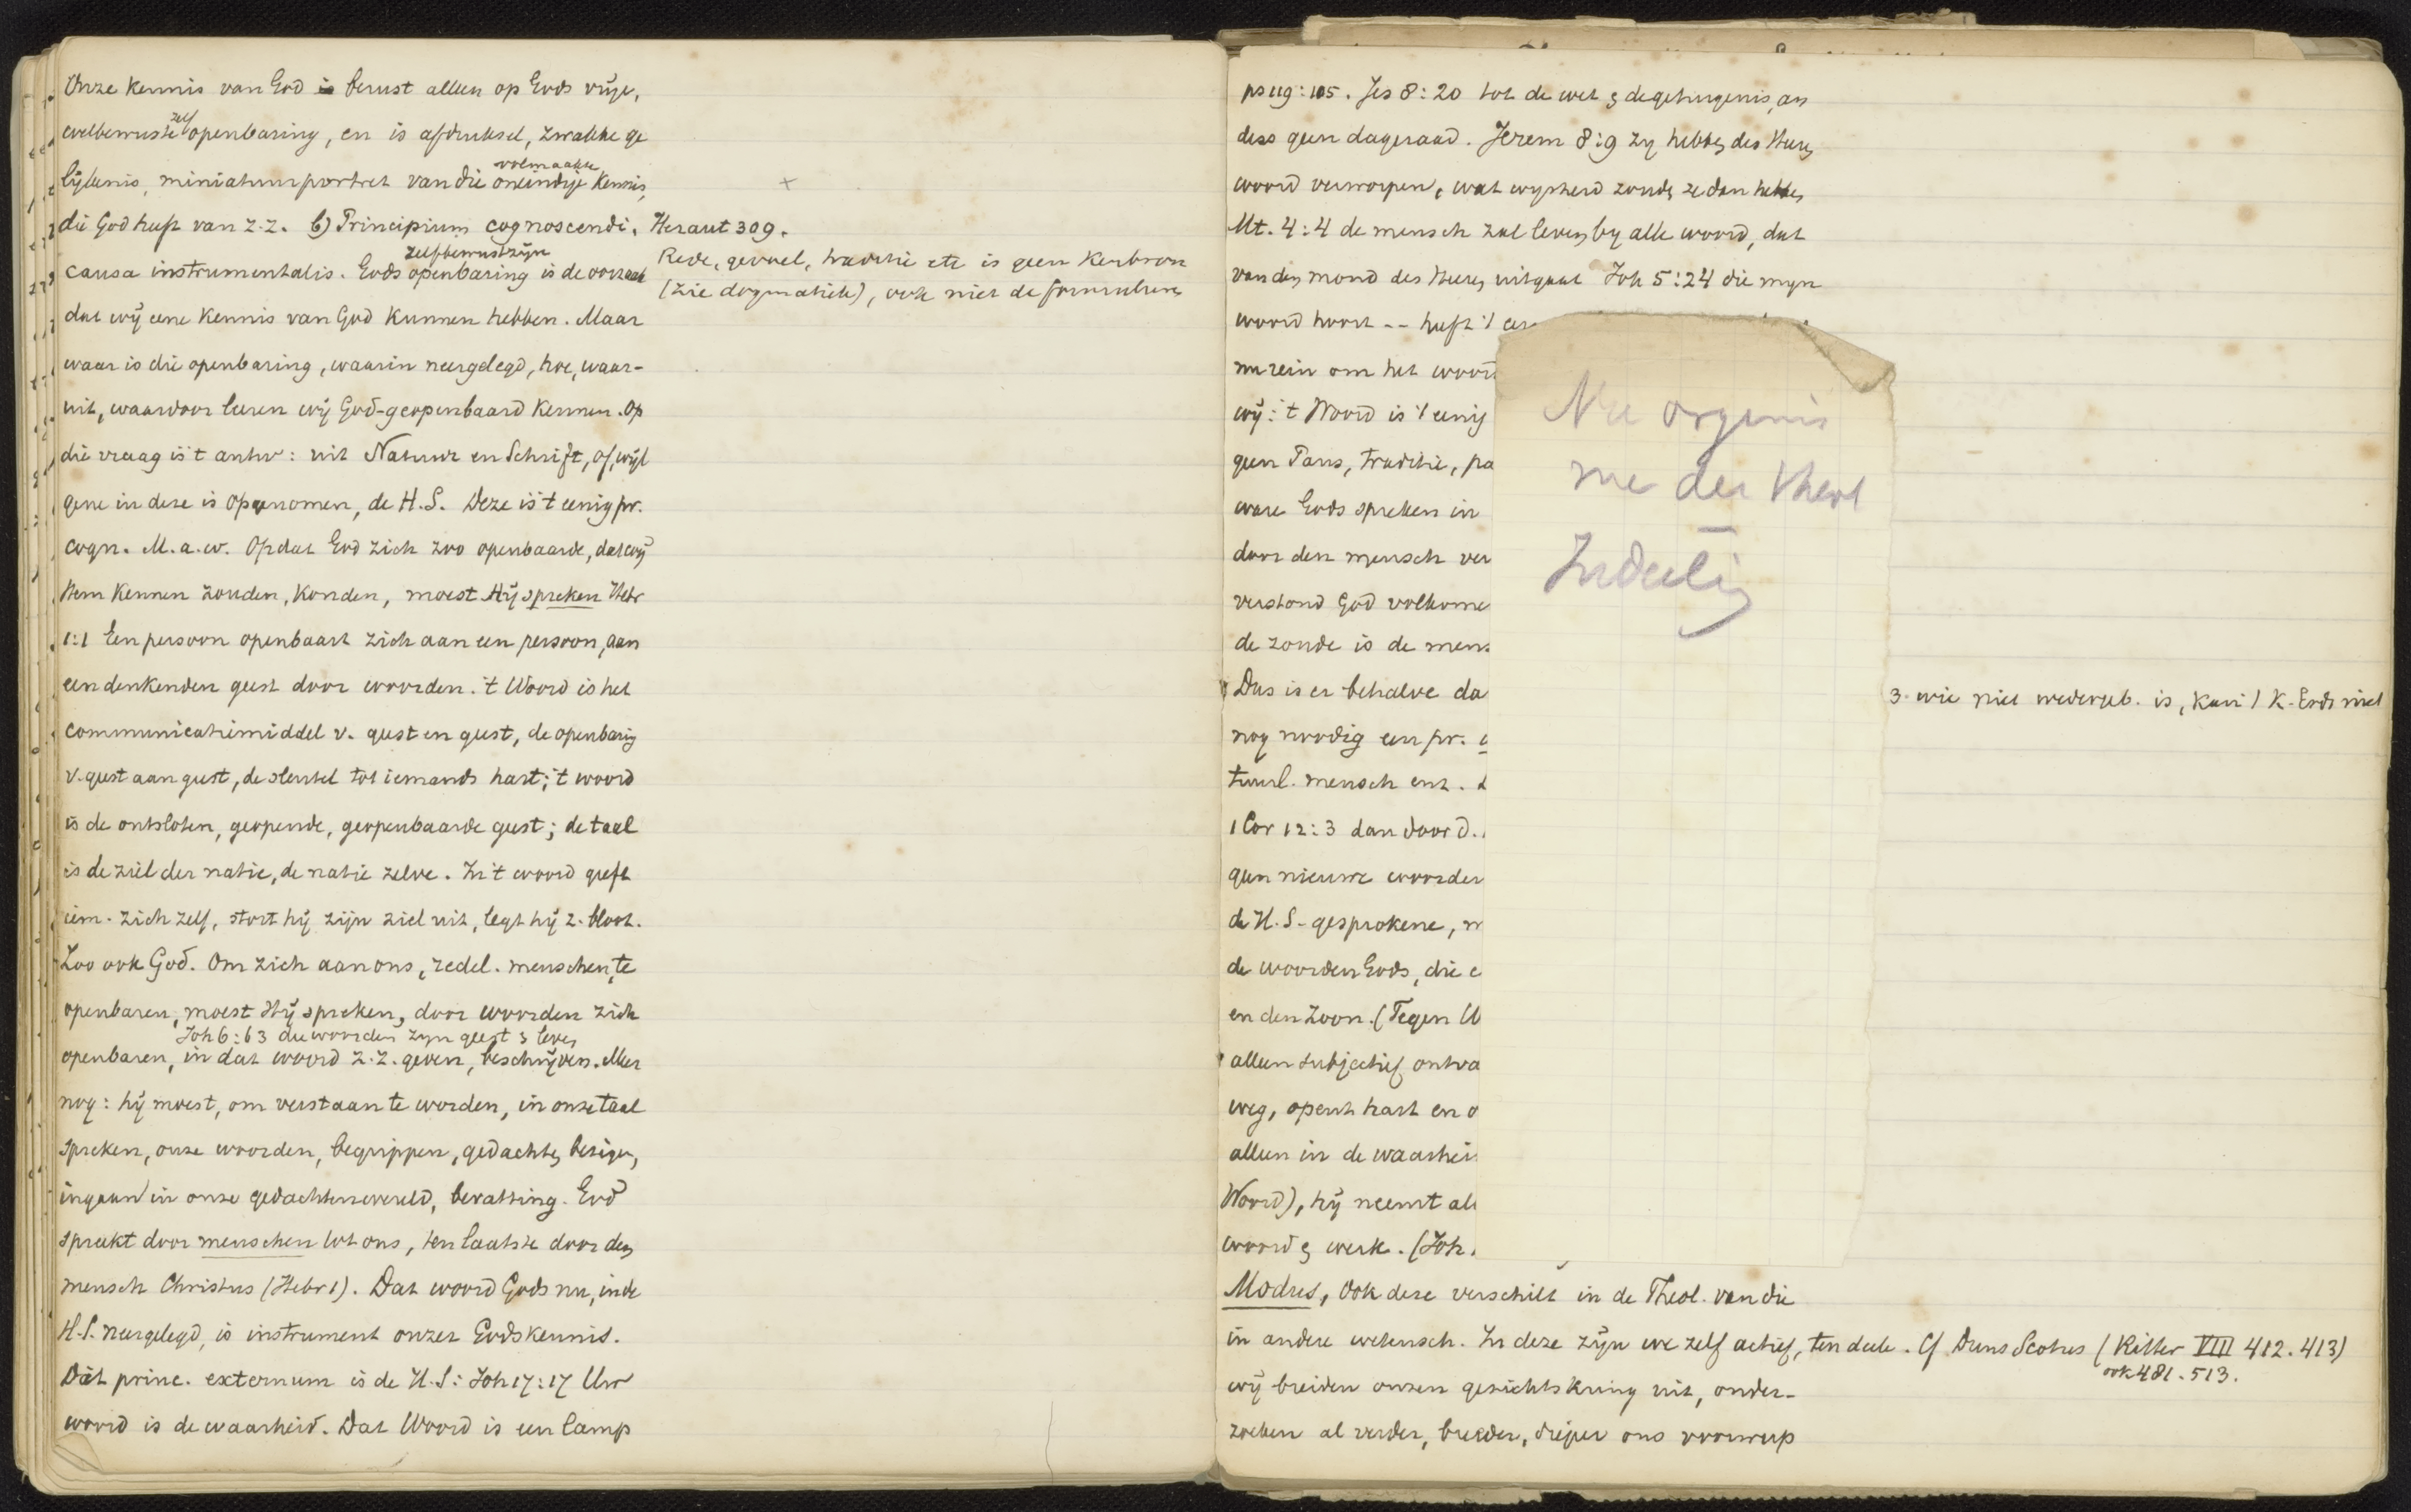 Onze Kennis van God is berust alleen op Gods vrije,
welbewuste zelf openbaring, en is afdruksel, zwakke ge
lijkenis, miniatuurportret van die volmaakte oneindige Kennis,
die God heeft van z.z. b) Principium cognoscendi,
causa instrumentalis. Gods zelfbewustzijn openbaring is de oorzaak
dat wij eene Kennis van God kunnen hebben. Maar
waar is die openbaring, waarin neergelegd, hoe, waar-
uit, waardoor leeren wij God-geopenbaard Kennen. Op
die vraag is 't antw: uit Natuur en Schrift, of, wijl
gene in deze is opgenomen, de H.S. Deze is 't eenig pr.
cogn. M.a.w. Opdat God zich zoo openbaarde, dat wij
Hem Kennen zouden, Konden, moest Hij spreken Hebr
1:1 Een persoon openbaart zich aan een persoon, aan
een denkenden geest door woorden. 't Woord is het
communicatiemiddel v. geest en geest, de openbaring
v. geest aan geest, de sleutel tot iemands hart; 't woord
is de ontsloten, geopende, geopenbaarde geest; de taal
is de ziel der natie, de natie zelve. In 't woord geeft
iem. zich zelf, stort hij zijn ziel uit, legt hij z. bloot.
Zoo ook God. Om zich aan ons, redel. menschen, te
openbaren, moest Hij spreken, door woorden zich
Joh 6:63 die woorden zyn geest & leven
openbaren, in dat woord z.z. geven, beschrijven. Meer
nog: hij moest, om verstaan te worden, in onze taal
spreken, onze woorden, begrippen, gedachten bezigen,
ingaan in onze gedachtenwereld, bevatting. God
spreekt door menschen tot ons, ten laatste door den
mensch Christus (Hebr 1). Dat woord Gods nu, in de
H.S. neergelegd, is instrument onzer Godskennis.
Dit princ. externum is de H.S: Joh 17:17 Uw
woord is de waarheid. Dat Woord is een lamp
Heraut 309.
Rede, gevoel, traditie etc is geen Kenbron
(zie dogmatiek), ook niet de formulieren
ps 119:105. Jes 8:20 tot de wet & de getuigenis, an
ders geen dageraad. Jerem 8:9 zy hebben des Heren
woord verworpen, wat wysheid zouden ze dan hebben
Mt. 4:4 de mensch zal leven by alle woord, dat
van den mond des Heren uitgaat Joh 5:24 die myn
woord hoort -- heeft 't
nu rein om het woord
wij: 't Woord is 't eenig
geen Paus, traditie, pa
ware Gods spreken in
door den mensch ver
verstond God volkome
de zonde is de mens
Dus is er behalve da
nog noodig een pr.
tuurl. mensch enz.
1 Cor 12:3 dan door d.
geen nieuwe woorden
de H.S-gesprokene,
de woorden Gods, die
en den Zoon. (Tegen
alleen subjectief ontva
weg, opent hart en o
alleen in de waarhei
Woord), hij neemt al
woord & werk. (Joh.
Modus, Ook deze verschilt in de Theol. van die
in andere wetensch. In deze zijn we zelf actief, ten deele. Cf Duns Scotus (Ritter VIII 412. 413)
ook 481. 513.
wij breiden onzen gezichtskring uit, onder-
zoeken al verder, breeder, dieper ons voorwerp
der Theol
Indeeling
3. wie niet wedergeb. is, kan 't K. Gods niet